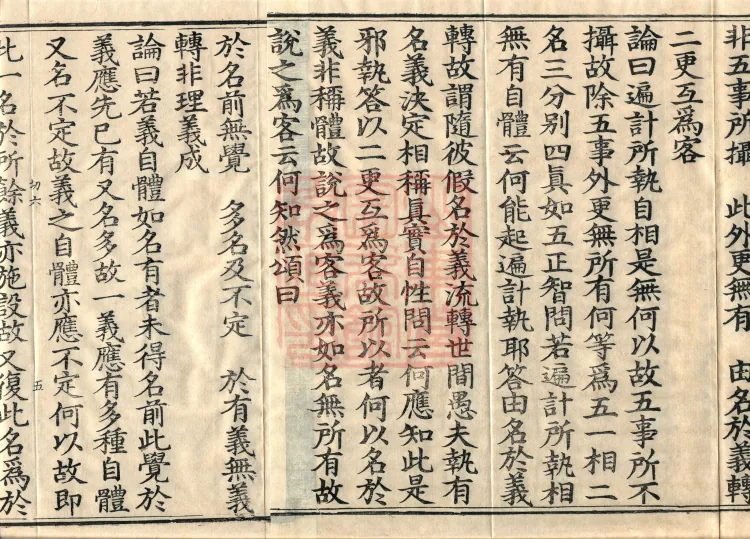 非五事所攝　此外更無有　由名於義轉
二更互爲客
論曰遍計所執自相是無何以故五事所不
攝故除五事外更無所有何等爲五一相二
名三分別四真如五正智問若遍計所執相
無有自體云何能起遍計執耶答由名於義
轉故謂隨彼假名於義流轉世間愚夫執有
名義決定相稱真實自性問云何應知此是
邪執答以二更互爲客故所以者何以名於
義非稱體故說之爲客義亦如名無所有故
說之爲客云何知然頌曰
於名前無覺　多名及不定　於有義無義
轉非理義成
論曰若義自體如名有者未得名前此覺於
義應先已有又名多故一義應有多種自體
又名不定故義之自體亦應不定何以故即
此一名於所餘義亦施設故又復此名爲於